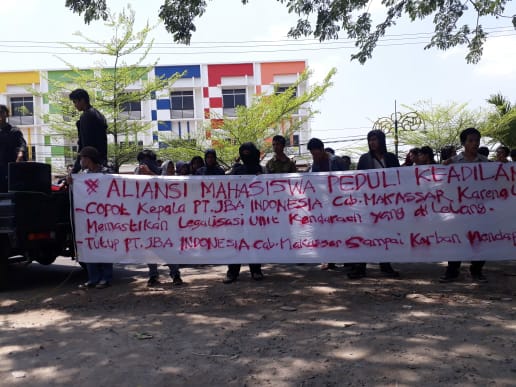 * ALIANSI MAHASISWA PEDULI KEADILAN
- COPOT Kepala PT. JBA INDONESIA Cab. MAKASSAR Karena
Memastikan Legalisasi Unit Kendaraan yang di Lelang.
- Tutup PT. JBA INDONESIA Cab. Makassar Sampai Korban Mendap